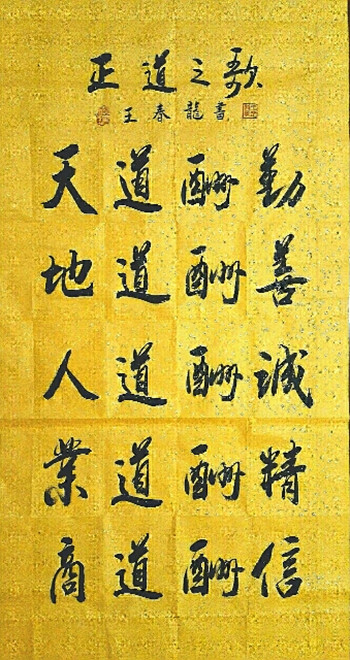 正道之歌
王春龍書
天道酬勤
地道酬善
人道酬誠
業道酬精
商道酬信